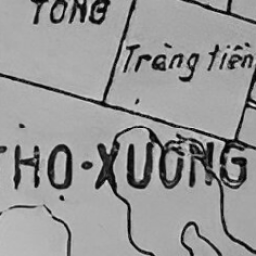 TỔNG
Tràng tiền
THỌ-XƯƠNG